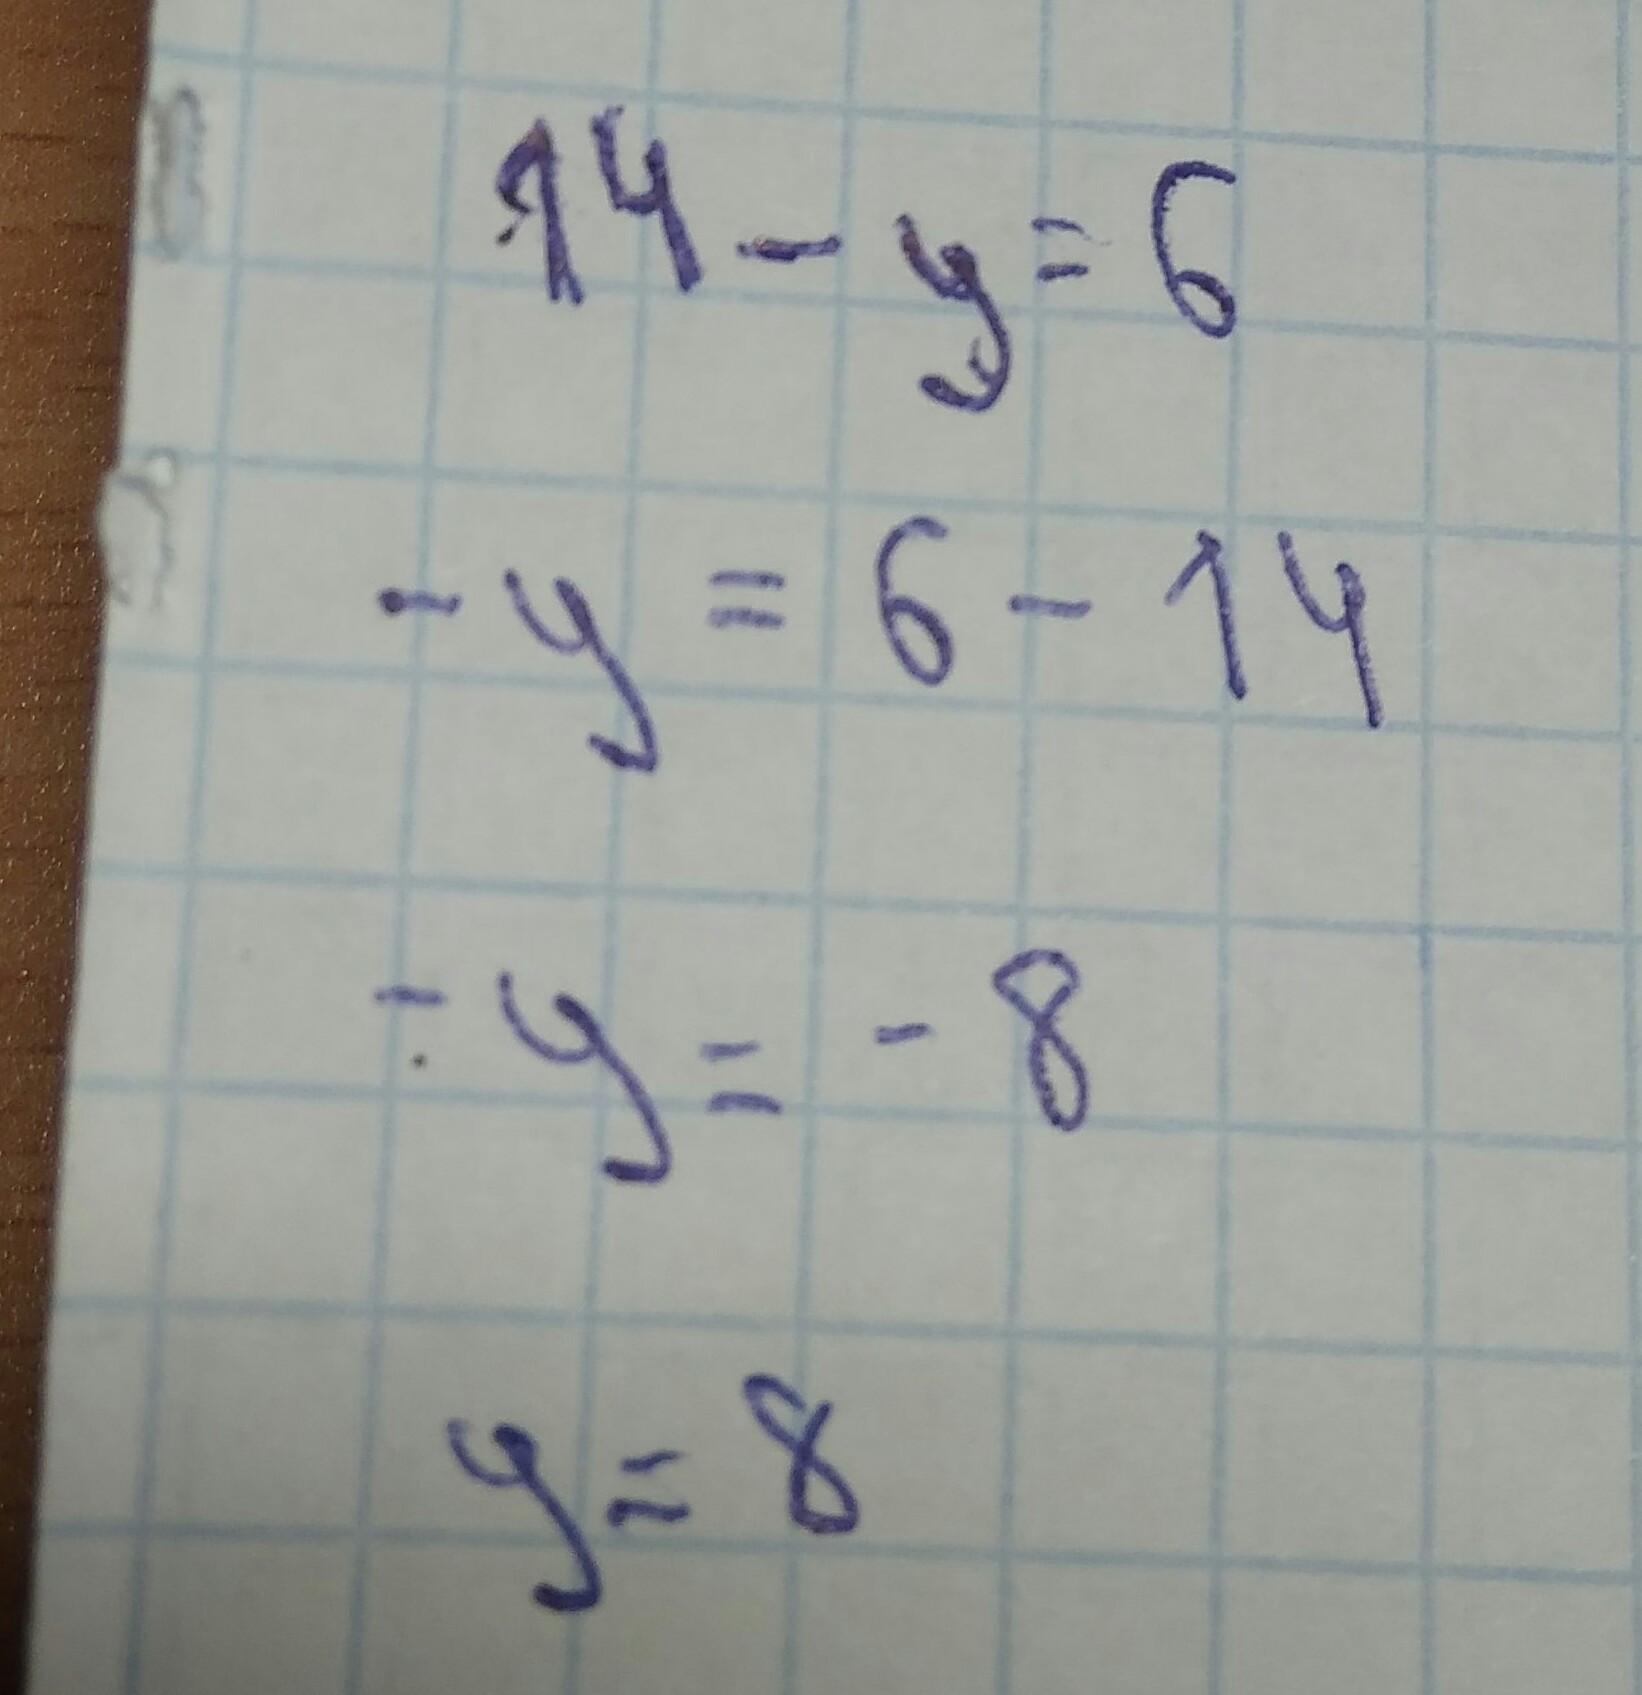 14 - y = 6
- y = 6 - 14
- y = - 8
y = 8